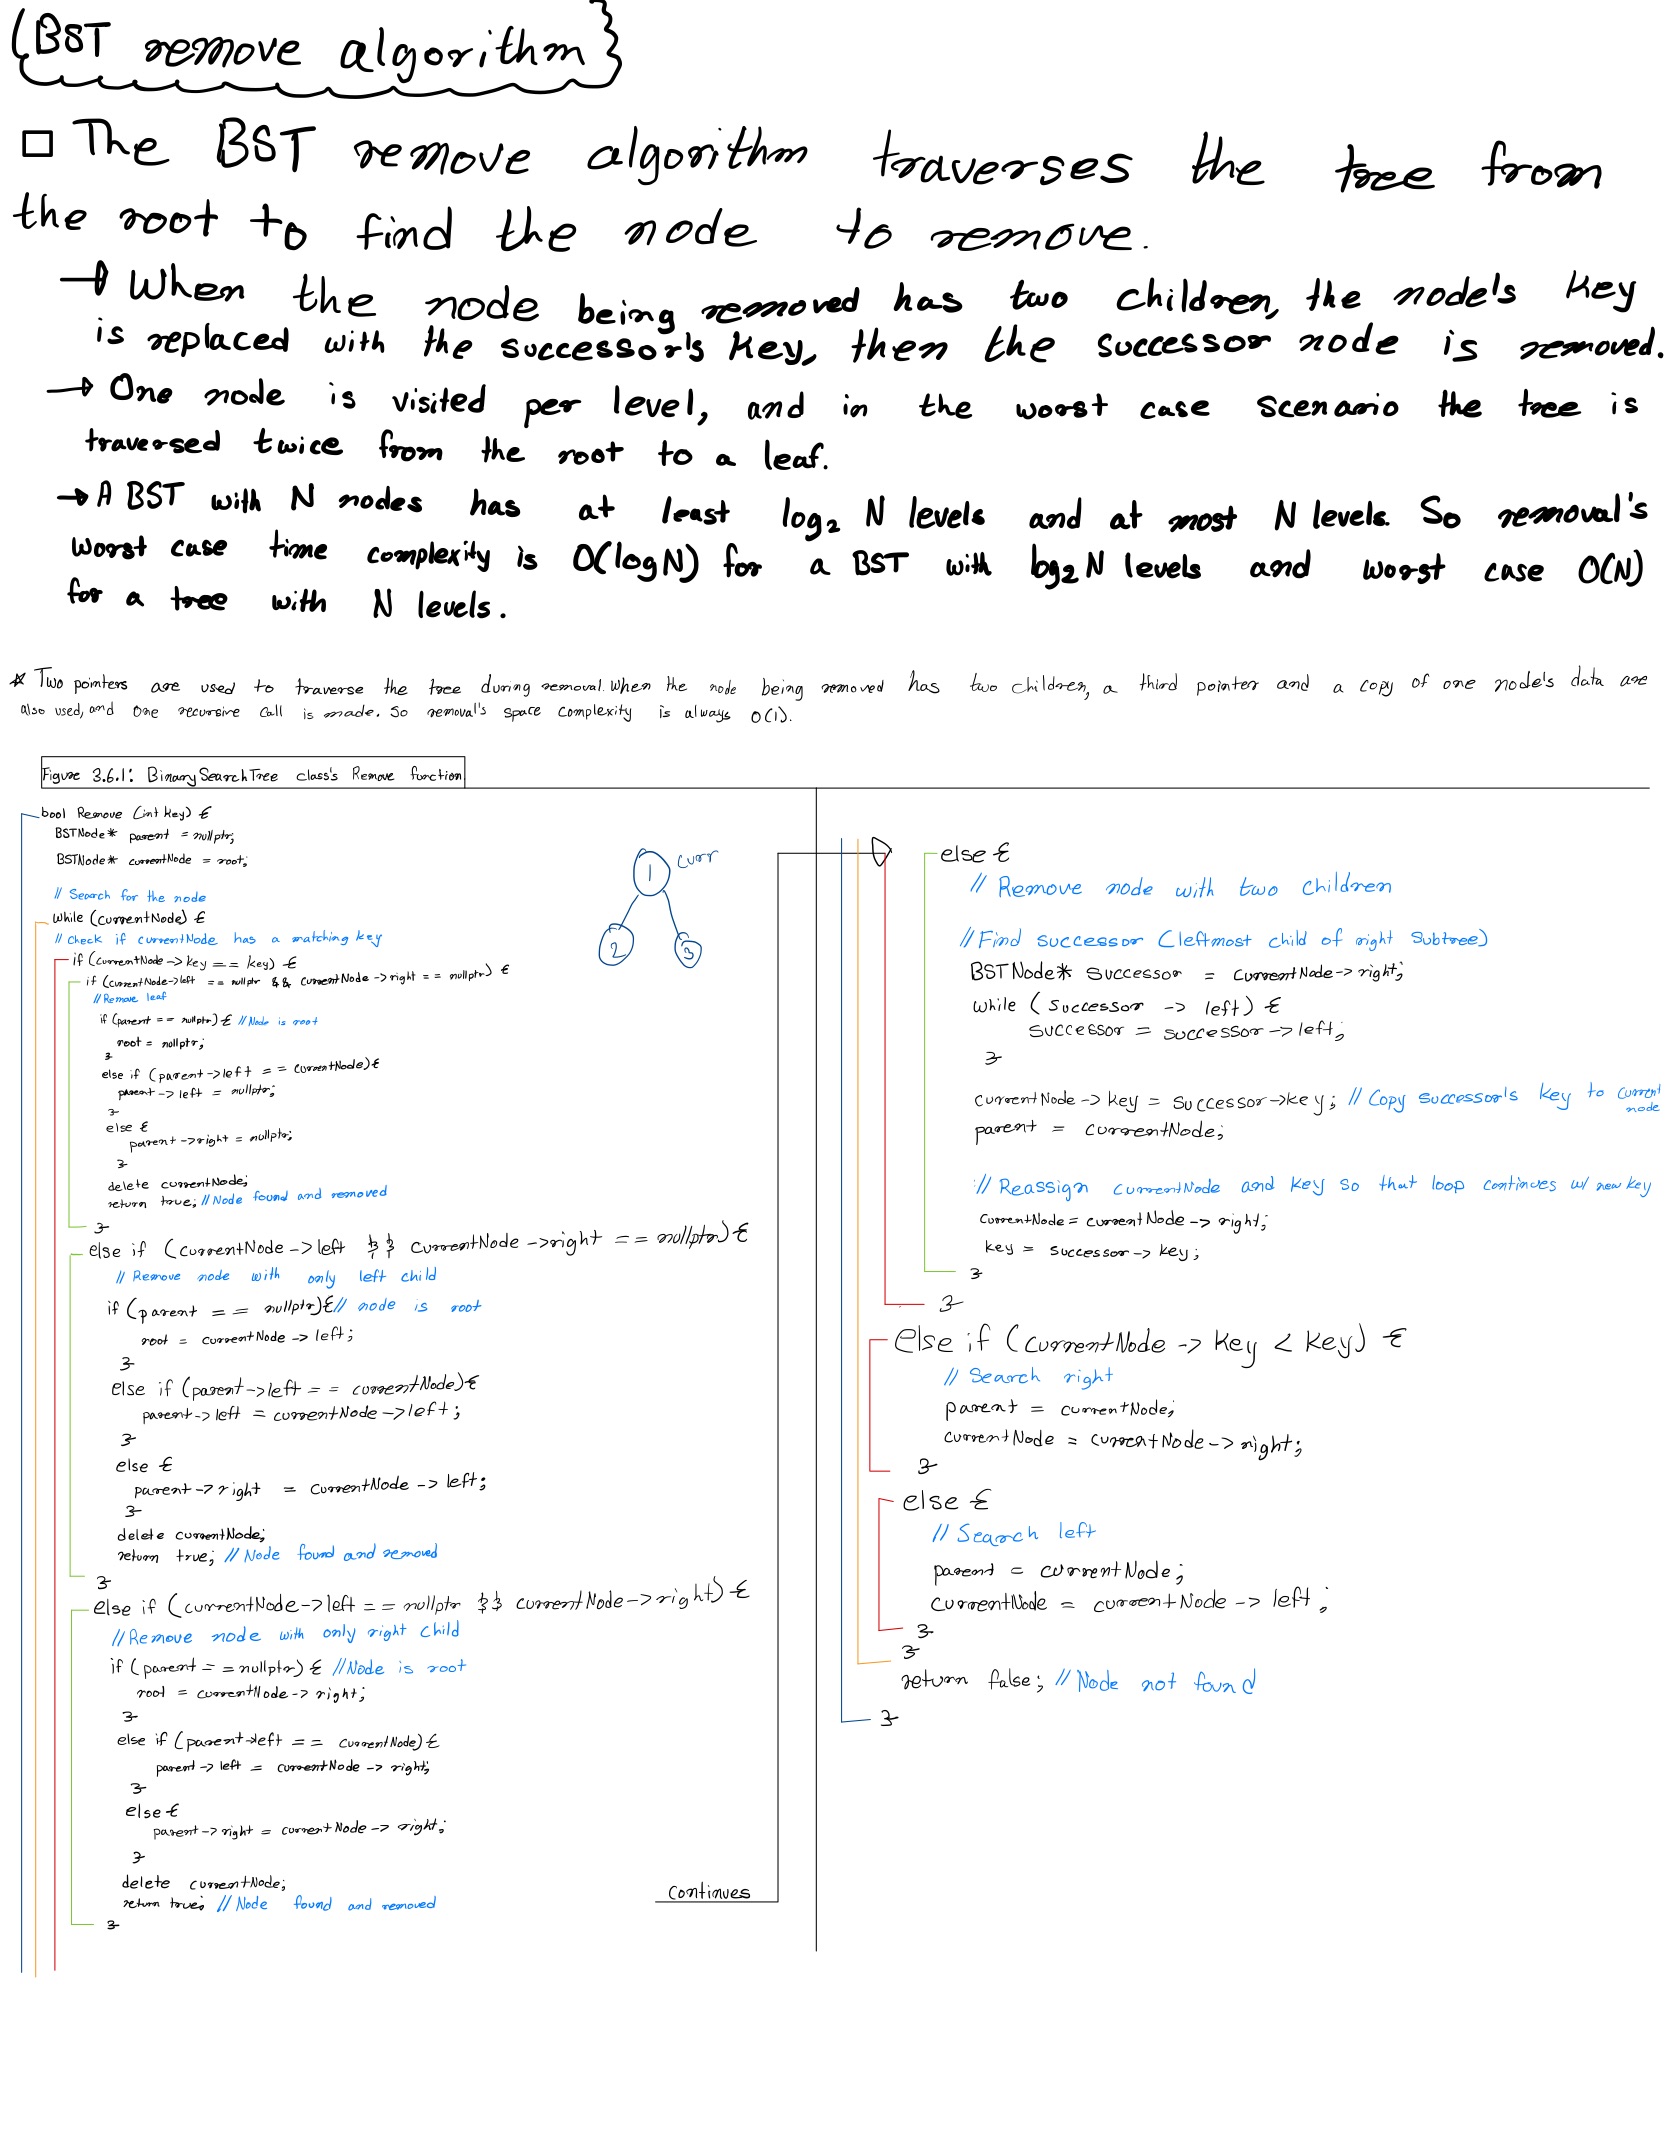 {BST remove algorithm}
□ The BST remove algorithm traverses the tree from
the root to find the node to remove.
→ When the node being removed has two children, the node's key
is replaced with the successor's key, then the successor node is removed.
→ One node is visited per level, and in the worst case scenario the tree is
traversed twice from the root to a leaf.
→ A BST with N nodes has at least log₂ N levels and at most N levels. So removal's
worst case time complexity is O(logN) for a BST with log₂ N levels and worst case O(N)
for a tree with N levels.
* Two pointers are used to traverse the tree during removal. When the node being removed has two children, a third pointer and a copy of one node's data are
also used, and One recursive call is made. So removal's space complexity is always O(1).
Figure 3.6.1: BinarySearchTree class's Remove function
bool Remove (int key) {
BSTNode* parent = nullptr;
BSTNode* currentNode = root;
// Search for the node
while (currentNode) {
// Check if currentNode has a matching key
if (currentNode->key == key) {
if (currentNode->left == nullptr && currentNode->right == nullptr) {
// Remove leaf
if (parent == nullptr) { // Node is root
root = nullptr;
}
else if (parent->left == currentNode) {
parent->left = nullptr;
}
else {
parent->right = nullptr;
}
delete currentNode;
return true; // Node found and removed
}
else if (currentNode->left && currentNode->right == nullptr) {
// Remove node with only left child
if (parent == nullptr) { // node is root
root = currentNode->left;
}
else if (parent->left == currentNode) {
parent->left = currentNode->left;
}
else {
parent->right = currentNode->left;
}
delete currentNode;
return true; // Node found and removed
}
else if (currentNode->left == nullptr && currentNode->right) {
// Remove node with only right child
if (parent == nullptr) { // Node is root
root = currentNode->right;
}
else if (parent->left == currentNode) {
parent->left = currentNode->right;
}
else {
parent->right = currentNode->right;
}
delete currentNode;
return true; // Node found and removed
}
continues
1 curr
2 3
else {
// Remove node with two children
// Find successor (leftmost child of right subtree)
BSTNode* successor = currentNode->right;
while (successor->left) {
successor = successor->left;
}
currentNode->key = successor->key; // Copy successor's key to current
node
parent = currentNode;
// Reassign currentNode and key so that loop continues w/ new key
currentNode = currentNode->right;
key = successor->key;
}
}
else if (currentNode->key < key) {
// Search right
parent = currentNode;
currentNode = currentNode->right;
}
else {
// Search left
parent = currentNode;
currentNode = currentNode->left;
}
}
return false; // Node not found
}